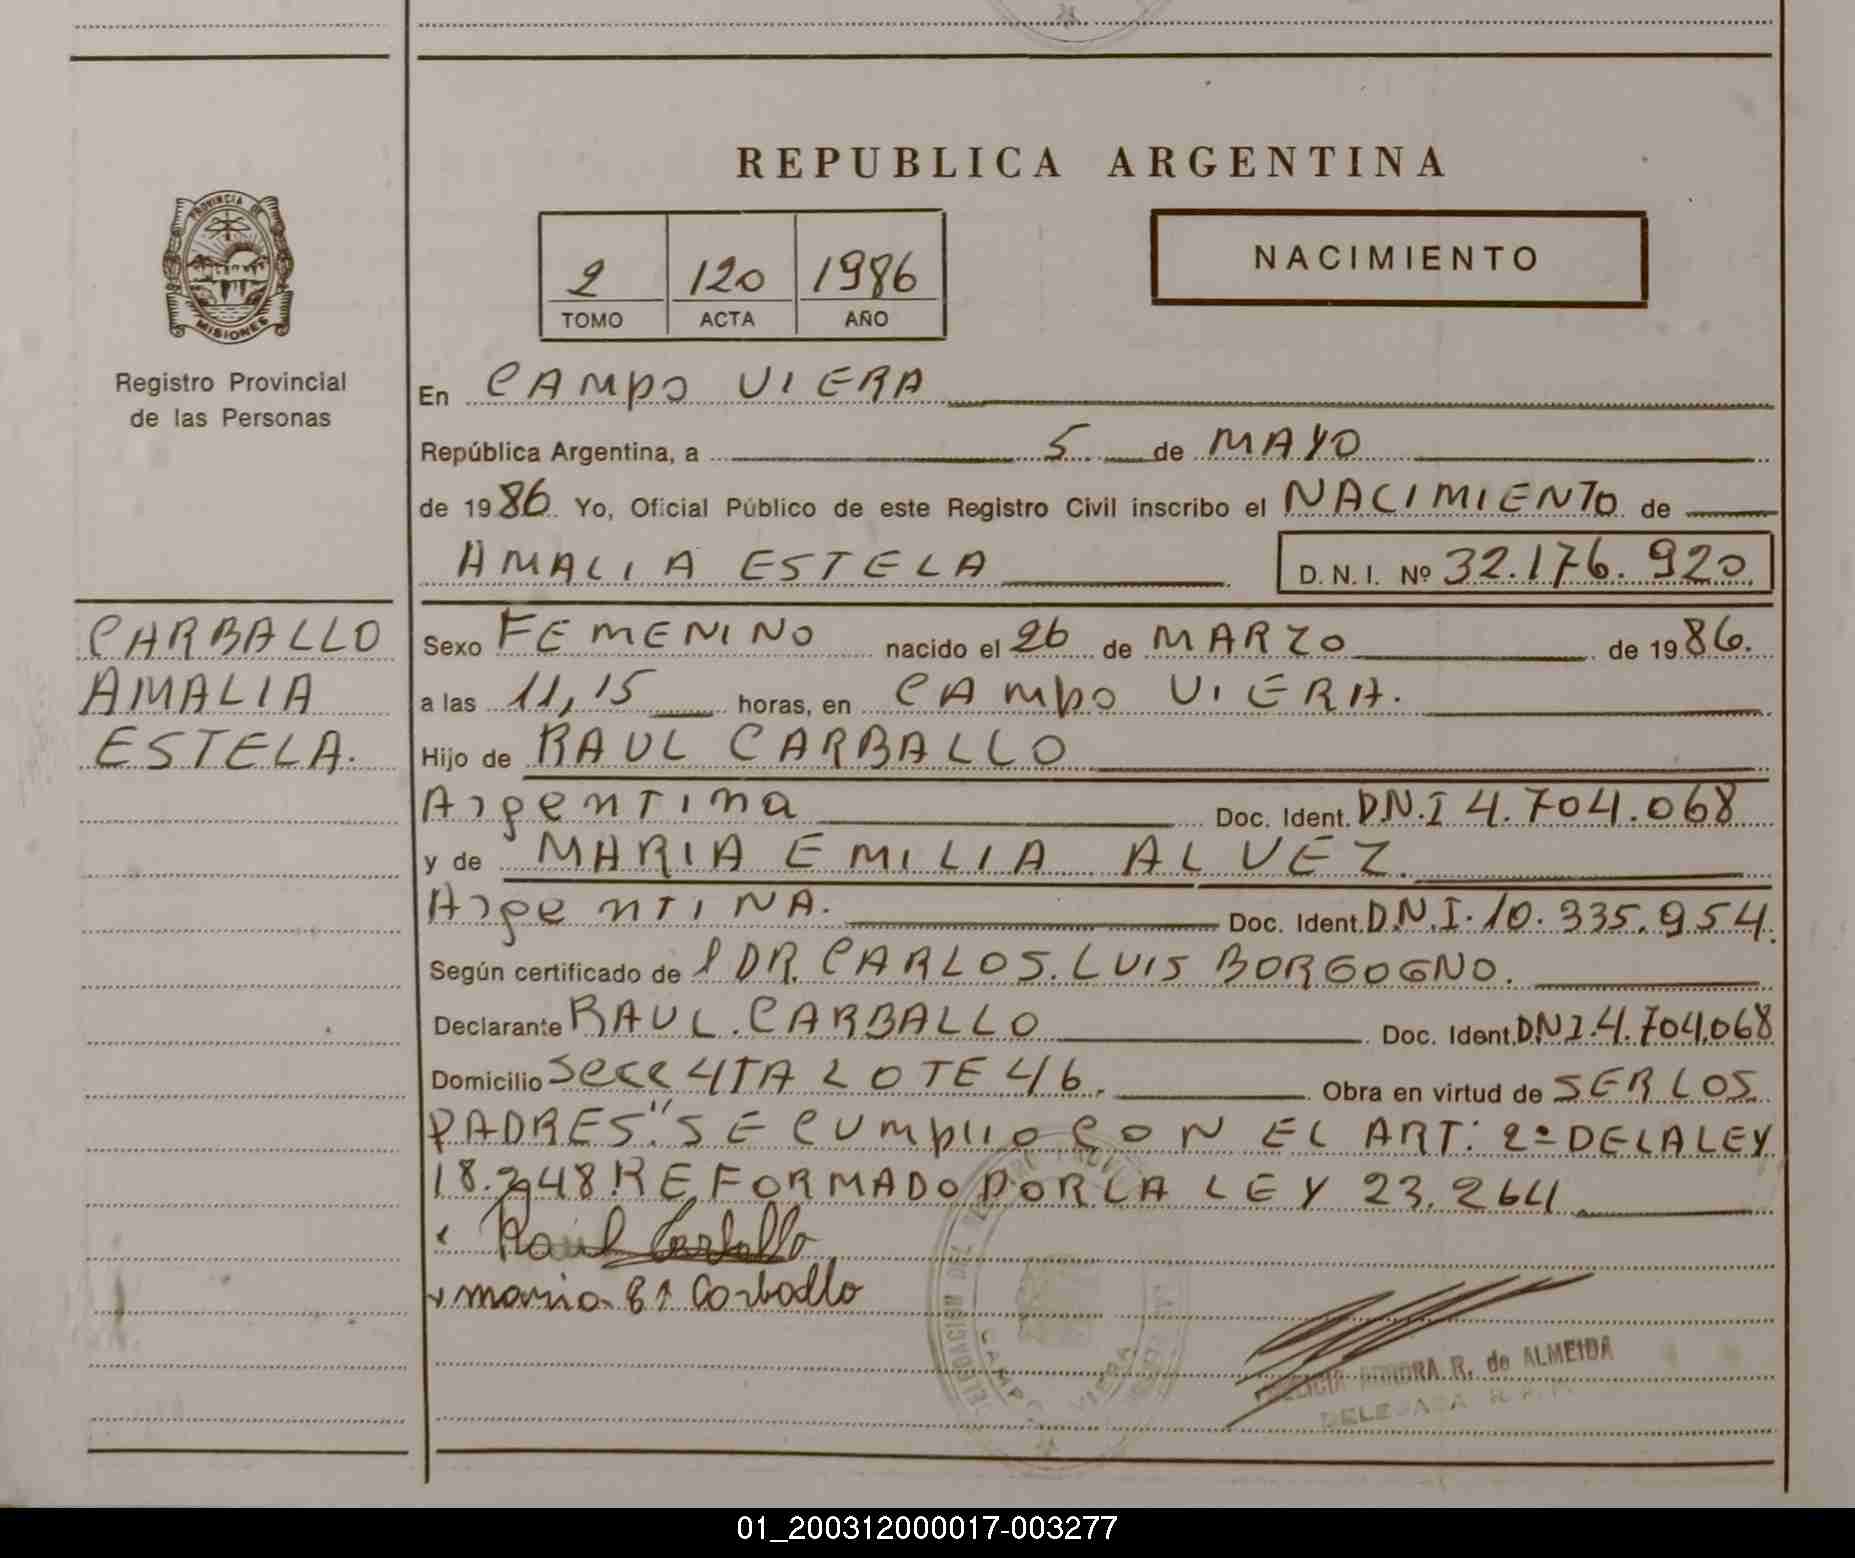 REPUBLICA ARGENTINA
PROVINCIA DE
MISIONES
Registro Provincial
de las Personas
2 120 1986
TOMO ACTA AÑO
NACIMIENTO
En CAMPO VIERA
República Argentina, a 5 de MAYO
de 1986. Yo, Oficial Público de este Registro Civil inscribo el NACIMIENTO de
AMALIA ESTELA D. N. I. Nº 32.176.920
CARBALLO
AMALIA
ESTELA.
Sexo FEMENINO nacido el 26 de MARZO de 1986.
a las 11,15 horas, en CAMPO VIERA.
Hijo de RAUL CARBALLO
Argentina Doc. Ident. D.N.I 4.704.068
y de MARIA EMILIA ALVEZ.
ArgeNTINA. Doc. Ident. D.N.I. 10.335.954.
Según certificado de l DR. CARLOS. LUIS BORGOGNO.
Declarante RAUL. CARBALLO Doc. Ident. DNI.4.704.068
Domicilio Secc 4TA LOTE 46. Obra en virtud de SER LOS
PADRES." SE CUMPLIO CON EL ART: 2º DE LA LEY
18.248 REFORMADO POR LA LEY 23.264
Raul Carballo
maria Carballo
CAMPO VIERA
R. de ALMEIDA
DELEGADA R.
01_200312000017-003277